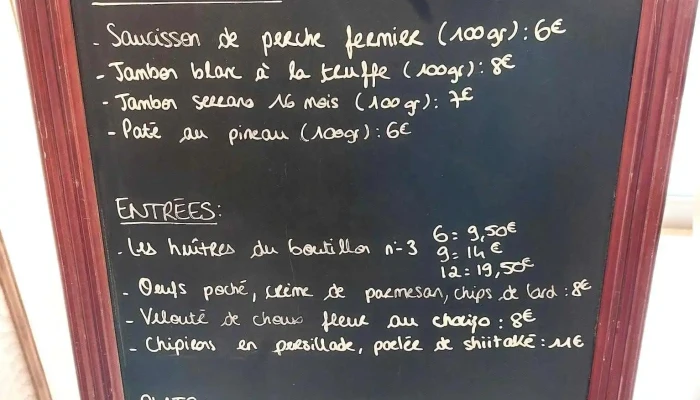 - Saucisson de perche fermier (100gr) : 6€
- Jambon blanc à la truffe (100gr) : 8€
- Jambon serrano 16 mois (100gr) : 7€
- Paté au pineau (100gr) : 6€
ENTRÉES :
- Les huîtres du boutillon n°3 6 = 9,50€
9 = 14€
12 = 19,50€
- Oeufs poché, crème de parmesan, chips de lard : 8€
- Velouté de choux fleur au chorizo : 8€
- Chipirons en persillade, poelée de shiitaké : 11€
PLATS